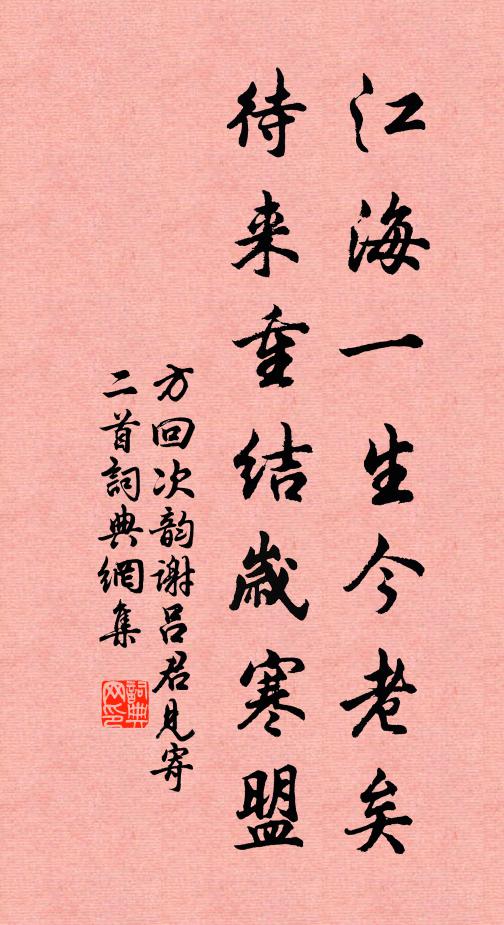 江海一生今老矣
待来重结歳寒盟
方回次韵谢吕君见寄
二首詞典網集
詞典网印